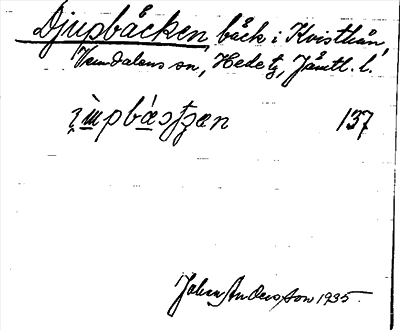 Djupbäcken, bäck i Kvisthån,
Vemdalens sn, Hede tg, Jämtl. l.
137
Johan Andersson 1935